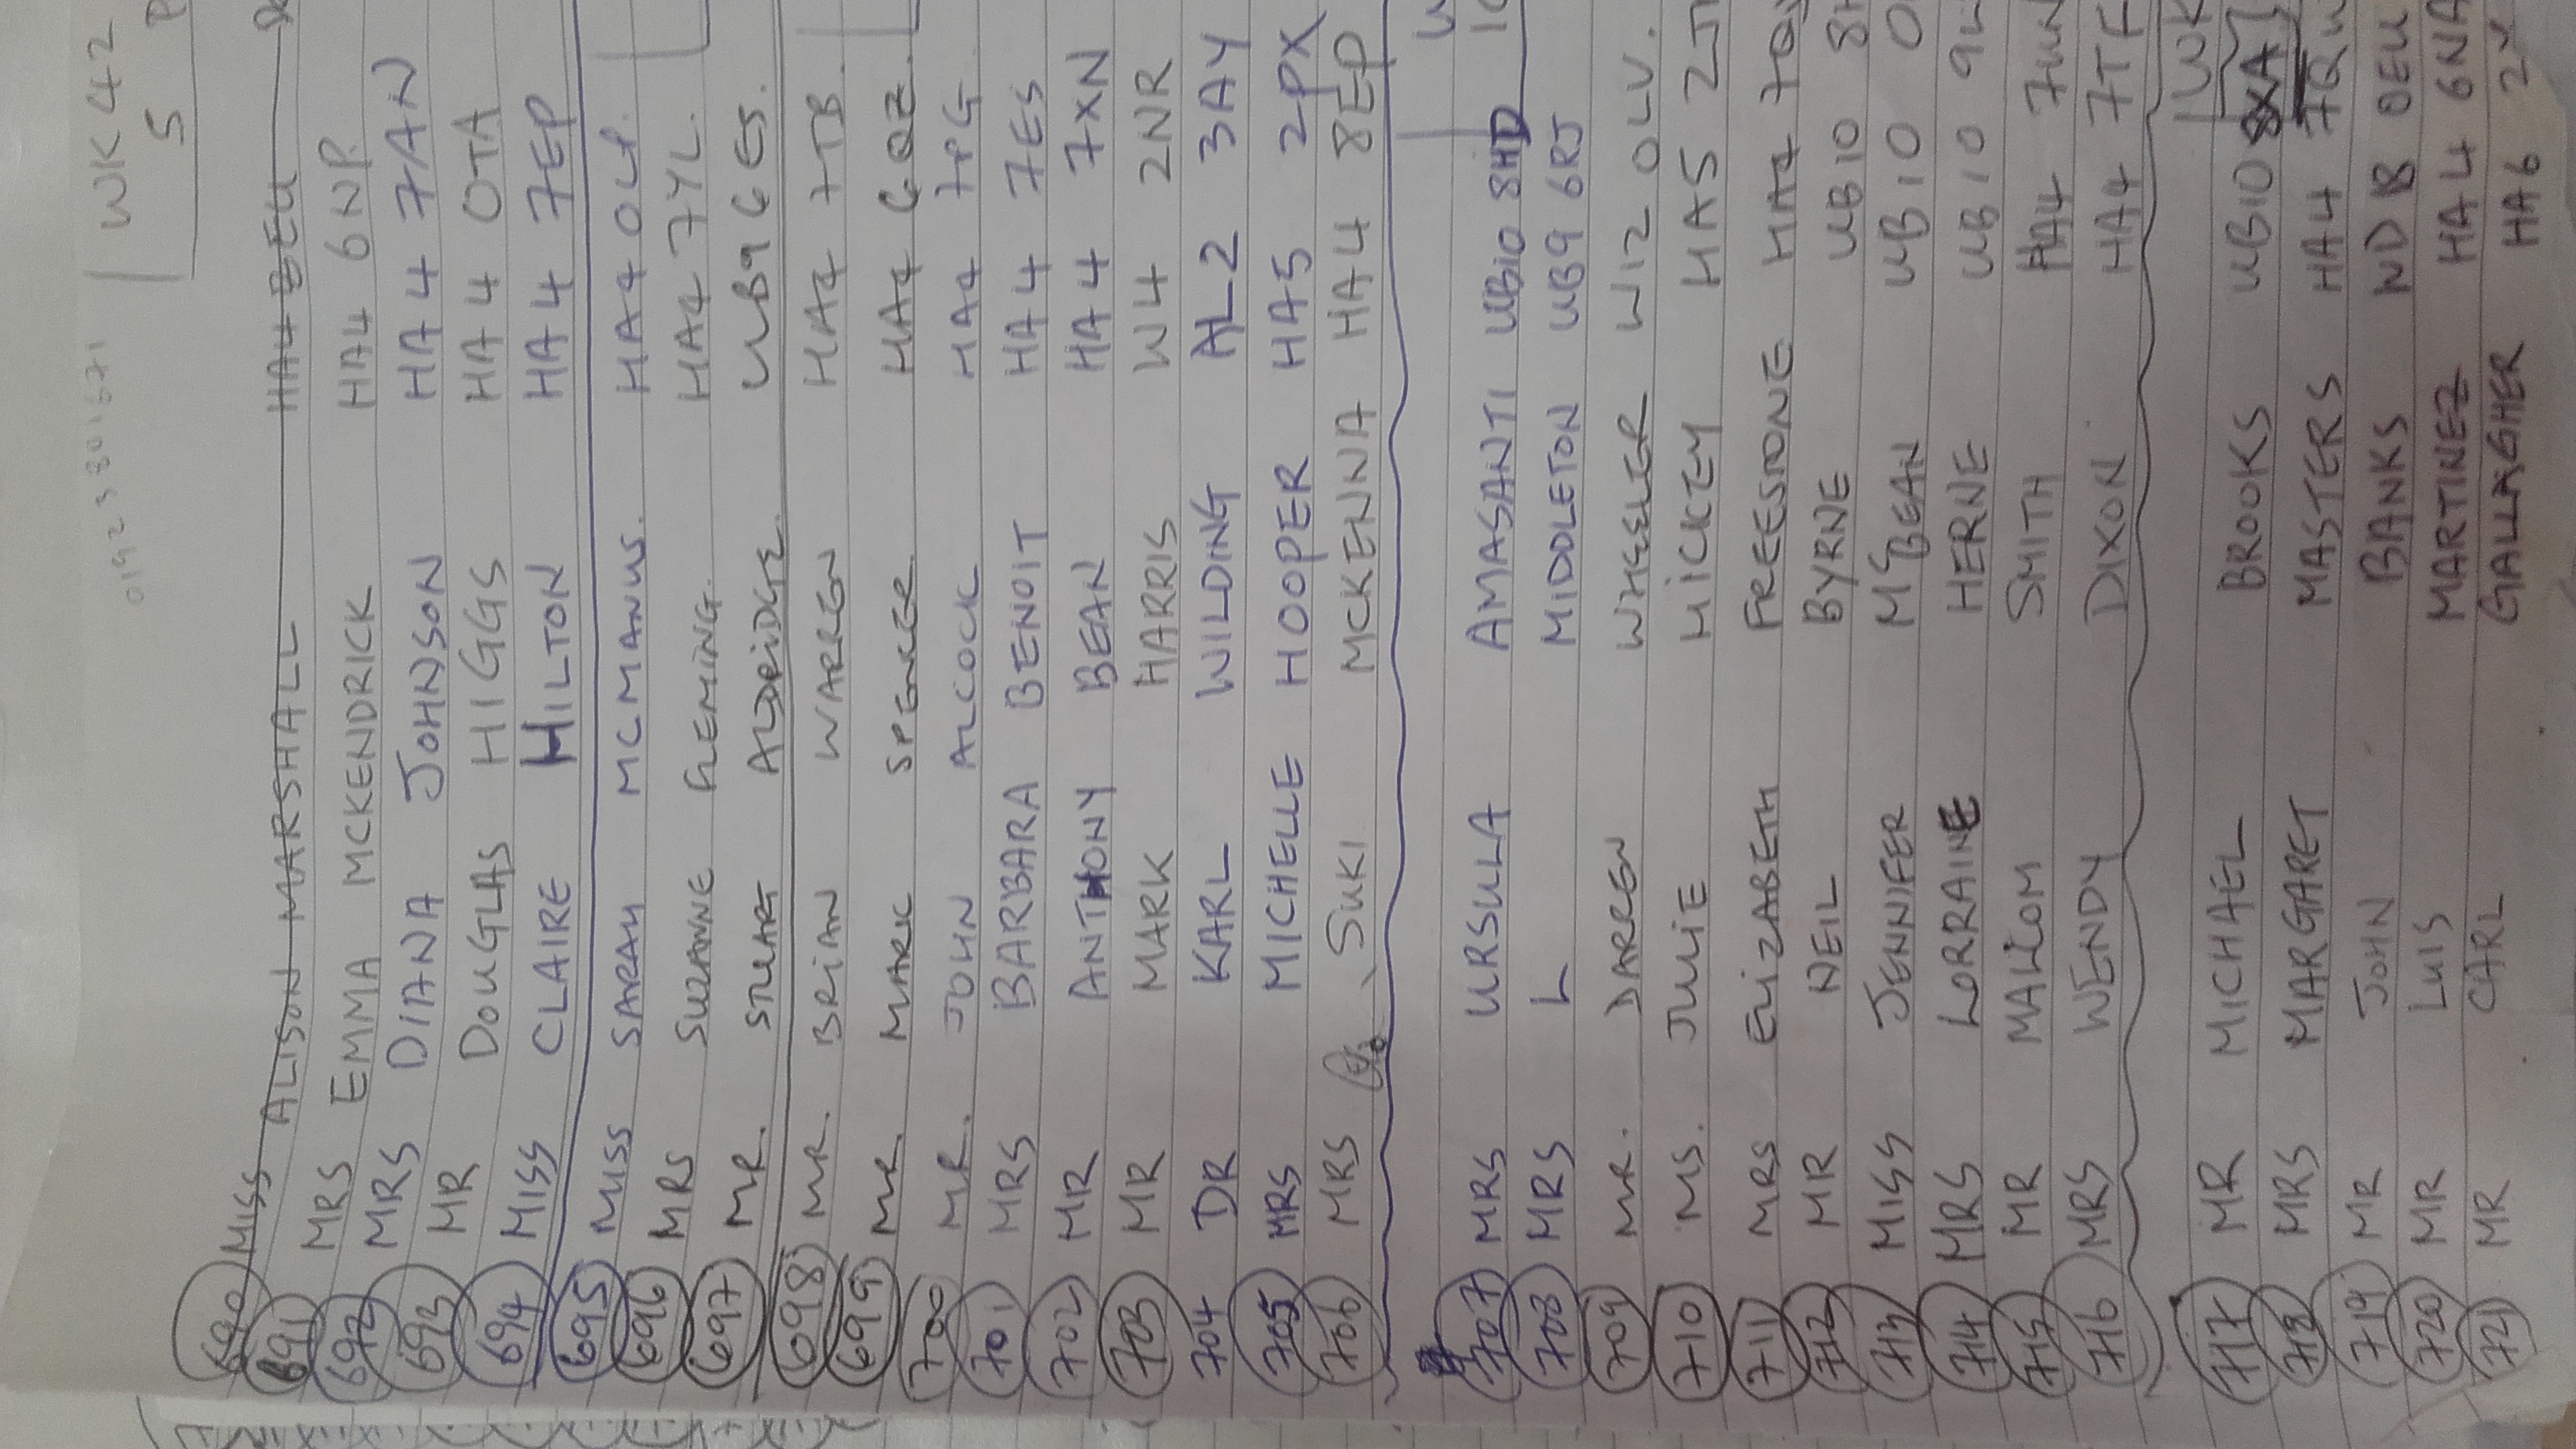 01923801671
WK 42
5
690 MISS ALISON MARSHALL HA4
691 MRS EMMA MCKENDRICK HA4 6NP.
692 MRS DIANA JOHNSON HA4 7AN
693 MR DOUGLAS HIGGS HA4 0TA
694 MISS CLAIRE HILTON HA4 7EP
695 MISS SARAH MCMANUS. HA4 0LP.
696 MRS SUZANNE FLEMING. HA4 7YL.
697 MR. STUART ALDRIDGE. UB9 6ES.
698 MR. BRIAN WARREN HA4 7TB.
699 MR. MARK SPENCER. HA4 6QZ.
700 MR. JOHN ALCOCK HA4 7PG
701 MRS BARBARA BENOIT HA4 7ES
702 MR ANTHONY BEAN HA4 7XN
703 MR MARK HARRIS W4 2NR
704 DR KARL WILDING AL2 3AY
705 MRS MICHELLE HOOPER HA5 2PX
706 MRS SUKI MCKENNA HA4 8EP
707 MRS URSULA AMASANTI UB10 8HD
708 MRS L MIDDLETON UB9 6RJ
709 MR. DARREN WHEELER W12 0LV.
710 MS. JULIE HICKEY HA5
711 MRS ELIZABETH FREESTONE HA4
712 MR NEIL BYRNE UB10
713 MISS JENNIFER MCBEAN UB10
714 MRS LORRAINE HERNE UB10
715 MR MALCOM SMITH HA4 7UN
716 MRS WENDY DIXON HA4 7TF
WK
717 MR MICHAEL BROOKS UB10 8XA
718 MRS MARGARET MASTERS HA4 7QW
719 MR JOHN BANKS 0EU
720 MR LUIS MARTINEZ HA4 6NA
721 MR CARL GALLAGHER HA6